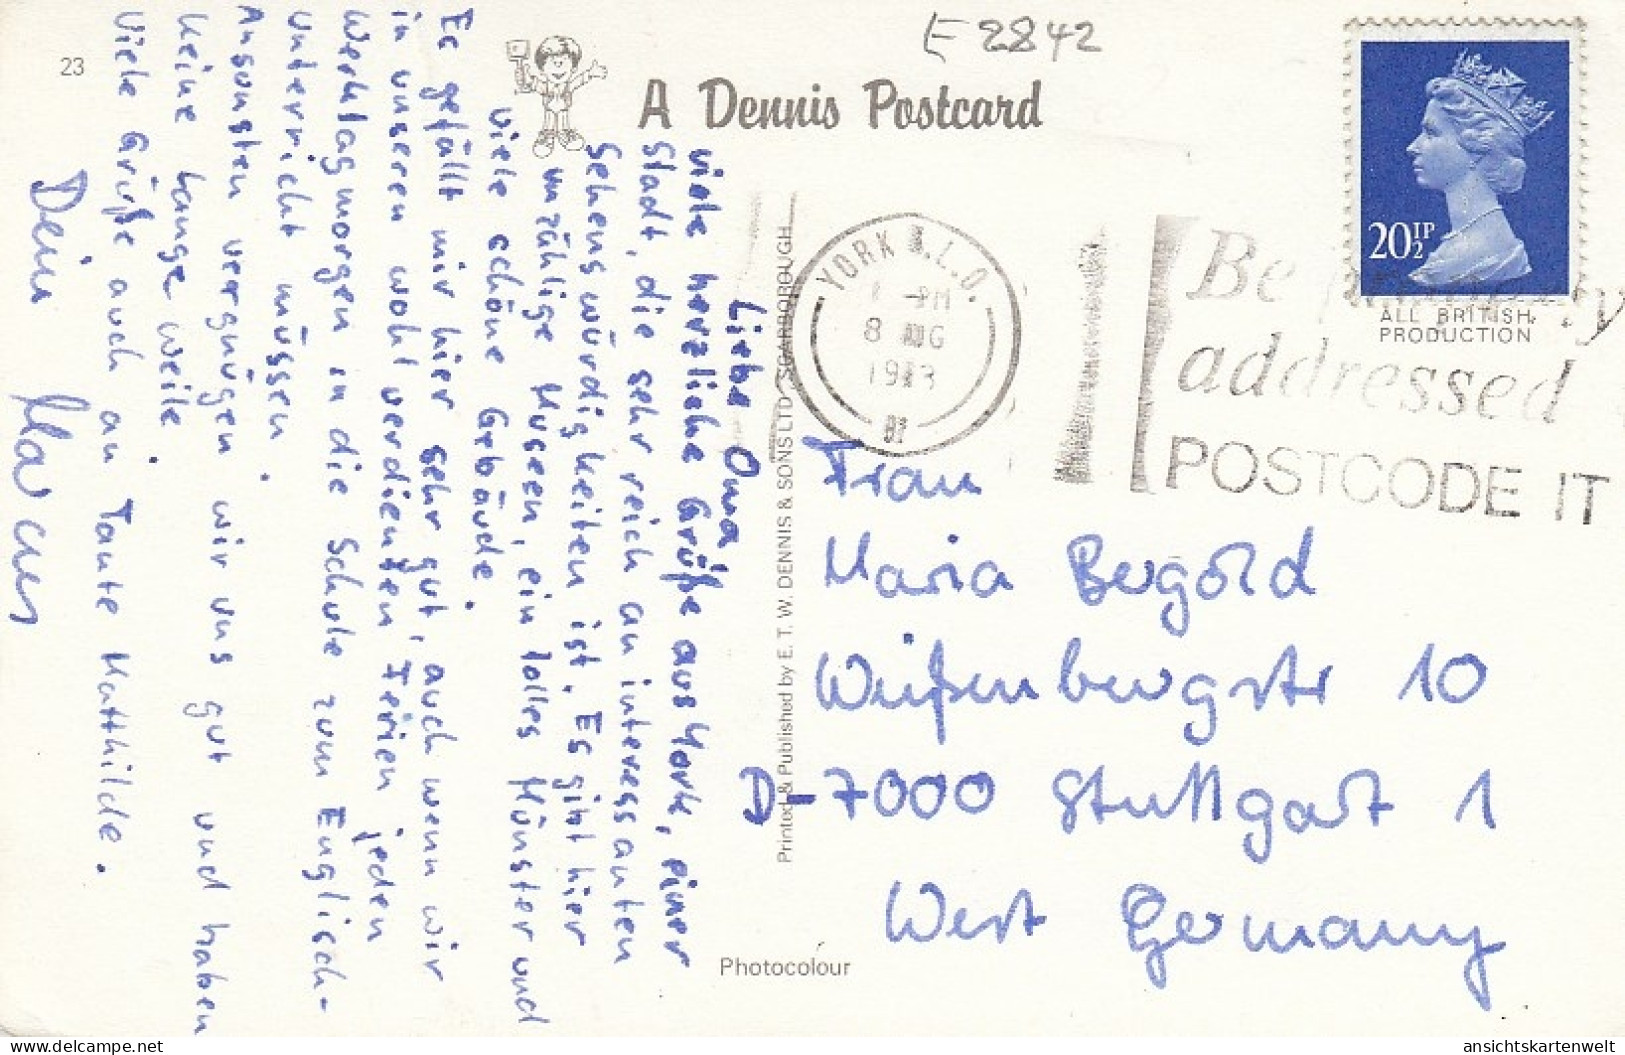 E 2842
23
A Dennis Postcard
20½P
YORK A.L.O.
PM
8 AUG
1983
Be
addressed
POSTCODE IT
ALL BRITISH
PRODUCTION
Liebe Oma,
viele herzliche Grüße aus York, einer
Stadt, die sehr reich an interessanten
Sehenswürdigkeiten ist. Es gibt hier
unzählige Museen, ein tolles Münster und
viele schöne Gebäude.
Es gefällt mir hier sehr gut, auch wenn wir
in unseren wohl verdienten Ferien jeden
Werktagmorgen in die Schule zum Englisch-
unterricht müssen.
Ansonsten vergnügen wir uns gut und haben
keine Langeweile.
Viele Grüße auch an Tante Matthilde.
Dein Marcus
Printed & Published by E. T. W. DENNIS & SONS LTD SCARBOROUGH
Frau
Maria Bergold
Weißenburgstr 10
D-7000 Stuttgart 1
West Germany
Photocolour
www.delcampe.net
ansichtskartenwelt